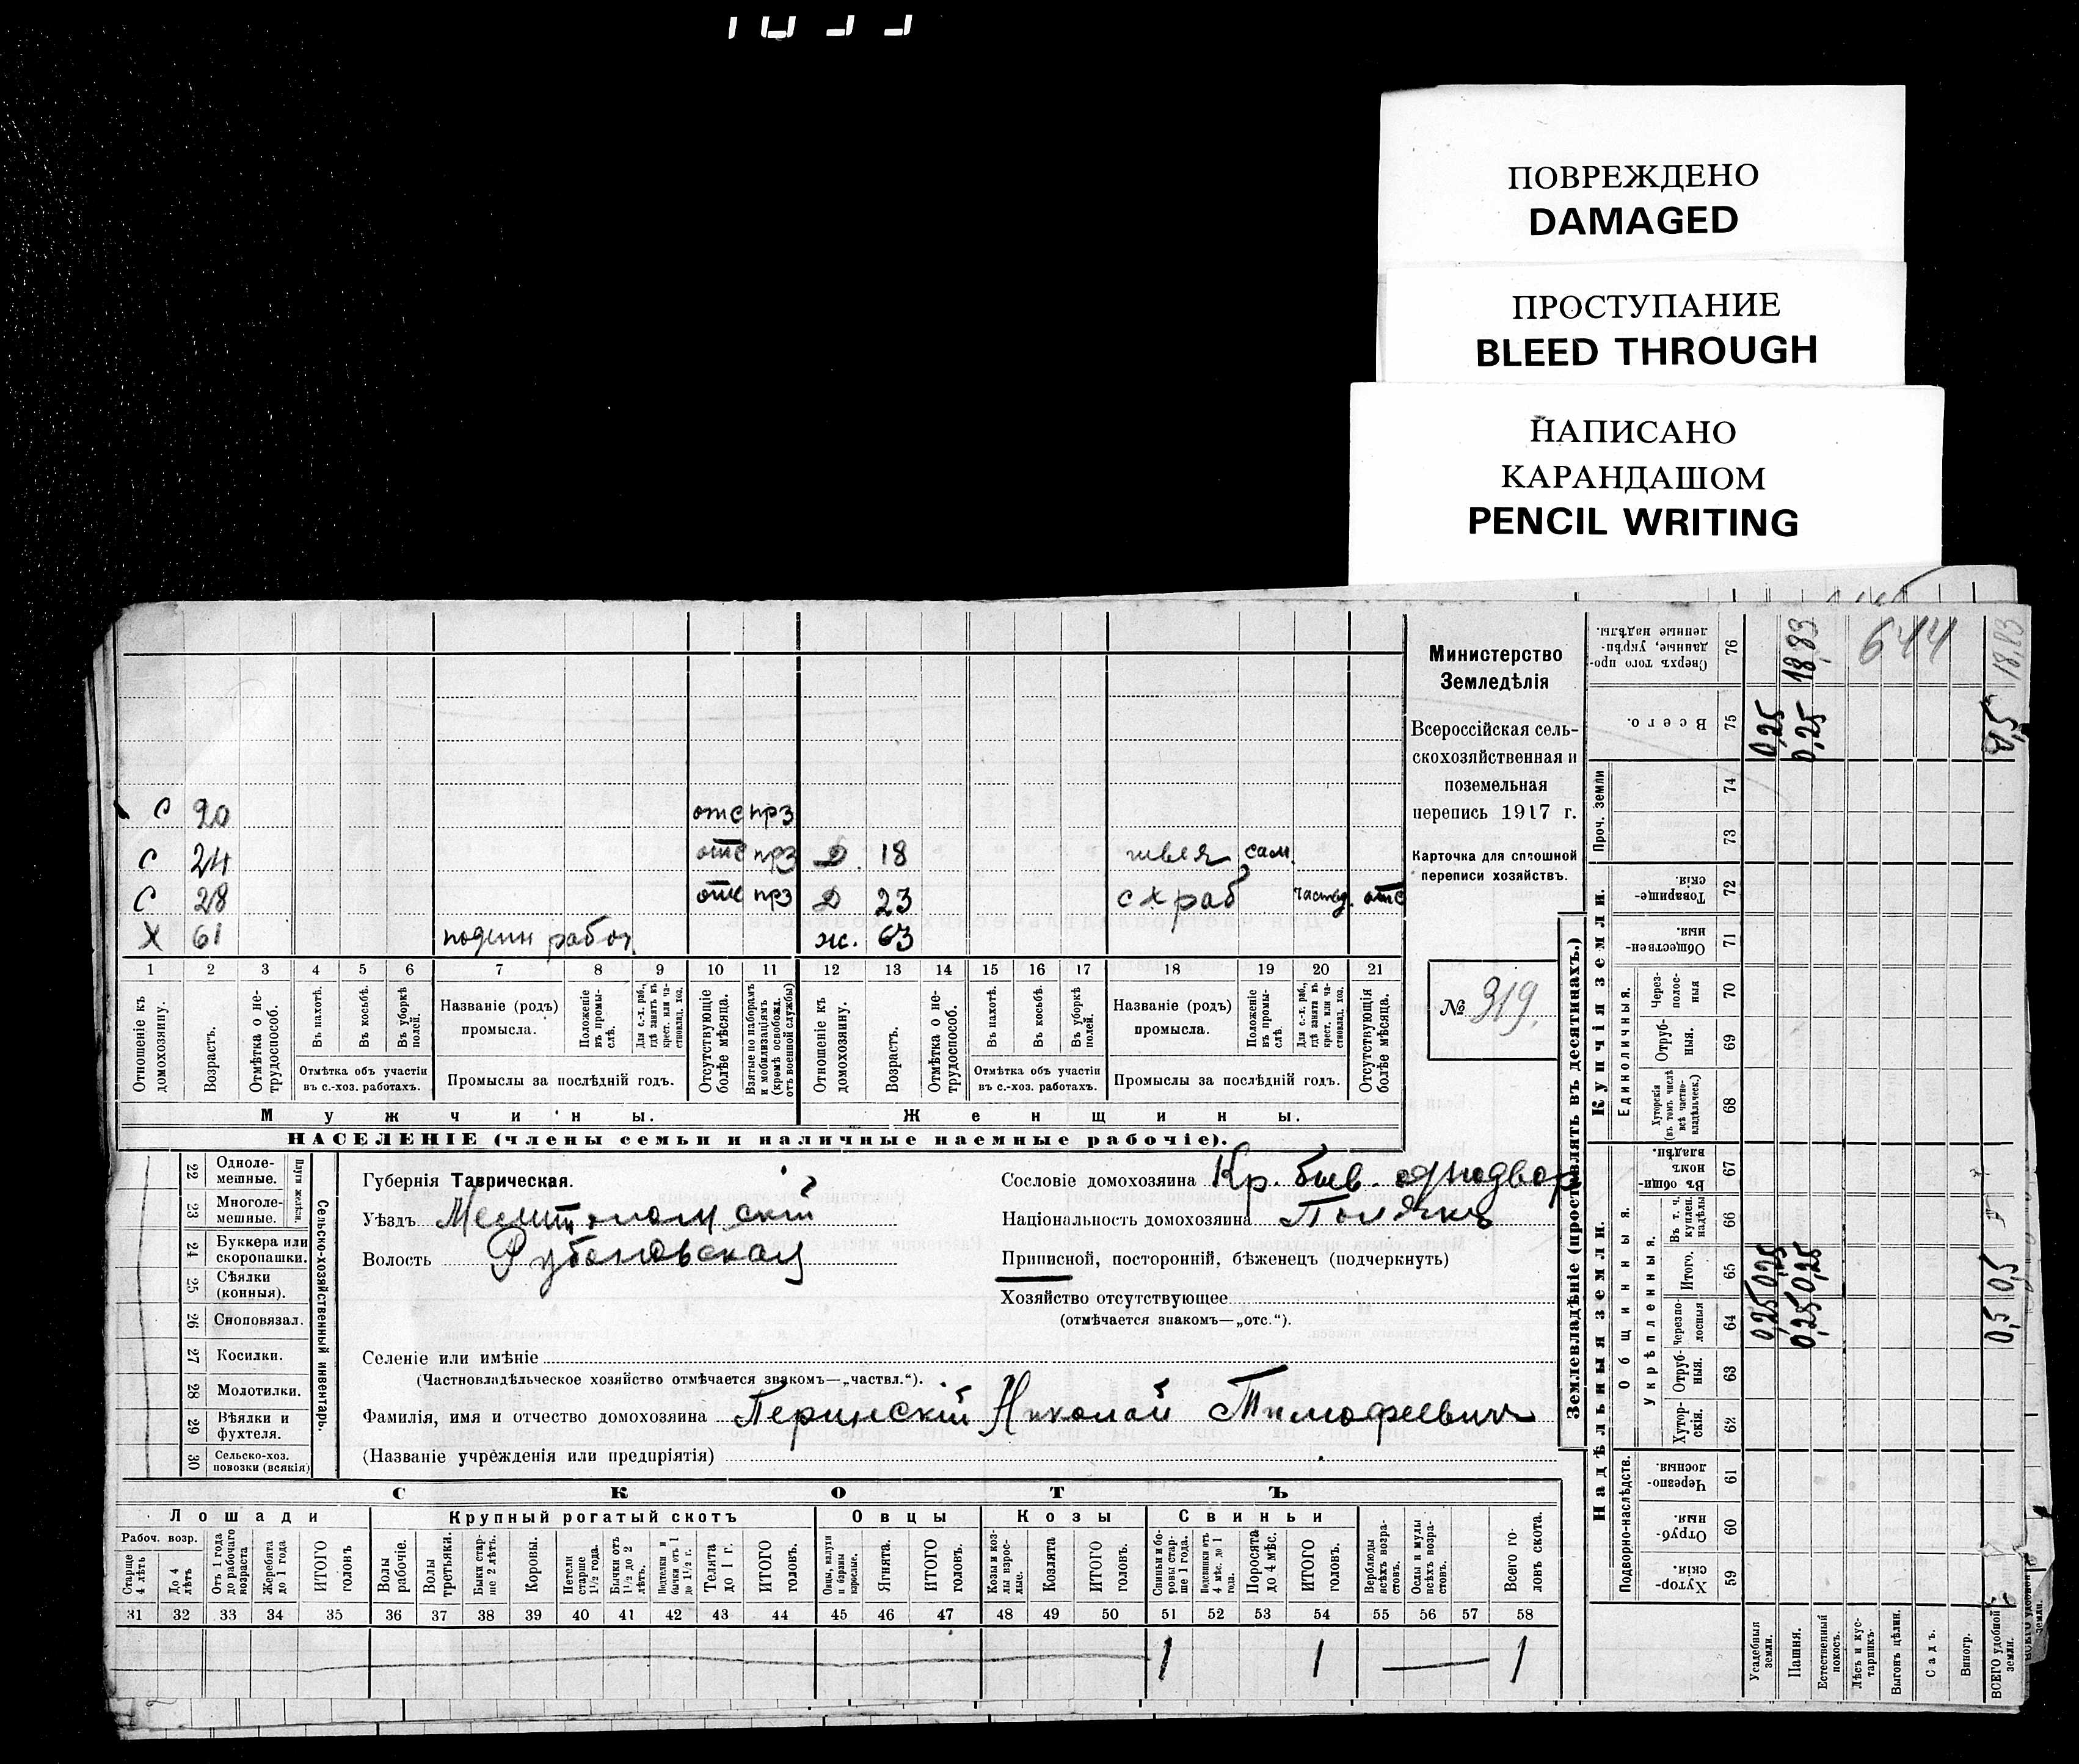 ПОВРЕЖДЕНО
DAMAGED
ПРОСТУПАНИЕ
BLEED THROUGH
НАПИСАНО
КАРАНДАШОМ
PENCIL WRITING
Министерство
Земледѣлія
Всероссійская сель-
скохозяйственная и
поземельная
перепись 1917 г.
Карточка для сплошной
переписи хозяйствъ.
№ 319.
С 20 отс прз
С 24 отс прз Д. 18 швея сам.
С 28 отс прз Д 23 с х раб частвл. отс
Х 61 поден рабоч. ж. 63
1 2 3 4 5 6 7 8 9 10 11 12 13 14 15 16 17 18 19 20 21
Отношеніе къ домохозяину.
Возрастъ.
Отмѣтка о не-трудоспособ.
Въ пахотѣ.
Въ косьбѣ.
Въ уборкѣ полей.
Отмѣтка объ участіи въ с.-хоз. работахъ.
Названіе (родъ) промысла.
Положеніе въ промыслѣ.
Для с.-х. раб., гдѣ занятъ въ крест. или частновлад. хоз.
Промыслы за послѣдній годъ.
Отсутствующіе болѣе мѣсяца.
Взятые по наборамъ и мобилизаціямъ (кромѣ освобожд. отъ военной службы)
Отношеніе къ домохозяину.
Возрастъ.
Отмѣтка о не-трудоспособ.
Въ пахотѣ.
Въ косьбѣ.
Въ уборкѣ полей.
Отмѣтка объ участіи въ с.-хоз. работахъ.
Названіе (родъ) промысла.
Положеніе въ промыслѣ.
Для с.-х. раб., гдѣ занятъ въ крест. или частновлад. хоз.
Промыслы за послѣдній годъ.
Отсутствующія болѣе мѣсяца.
Мужчины. Женщины.
НАСЕЛЕНІЕ (члены семьи и наличные наемные рабочіе).
Сельско-хозяйственный инвентарь.
Плуги желѣзн.
22 Одноле-мешные.
23 Многоле-мешные.
24 Буккера или скоропашки.
25 Сѣялки (конныя).
26 Сноповязал.
27 Косилки.
28 Молотилки.
29 Вѣялки и фухтеля.
30 Сельско-хоз. повозки (всякія)
Губернія Таврическая.
Уѣздъ Мелитопольскій
Волость Рубановская
Сословіе домохозяина Кр. быв. однодвор
Національность домохозяина Полякъ
Приписной, посторонній, бѣженец (подчеркнуть)
Хозяйство отсутствующее
(отмѣчается знакомъ—„отс.“).
Селеніе или имѣніе
(Частновладѣльческое хозяйство отмѣчается знакомъ—„частвл.“).
Фамилія, имя и отчество домохозяина Перинскій Николай Тимофеевич
(Названіе учрежденія или предпріятія)
СКОТЪ
Лошади Крупный рогатый скотъ Овцы Козы Свиньи
Рабоч. возр.
Старше 4 лѣтъ
До 4 лѣтъ
Отъ 1 года до рабочаго возраста
Жеребята до 1 года
ИТОГО головъ
Волы рабочіе.
Волы третьяки.
Быки стар-ше 2 лѣтъ.
Коровы.
Нетели старше 1½ года.
Бычки отъ 1½ до 2 лѣтъ.
Подтелки и бычки отъ 1 до 1½ г.
Телята до 1 г.
ИТОГО головъ.
Овцы, валухи и бараны взрослые.
Ягнята.
ИТОГО головъ.
Козы и коз-лы взрос-лые.
Козлята
ИТОГО головъ.
Свиньи и бо-ровы стар-ше 1 года.
Подсвинки отъ 4 мѣс. до 1 года.
Поросята до 4 мѣс.
ИТОГО головъ.
Верблюды всѣхъ возра-стовъ.
Ослы и мулы всѣхъ возра-стовъ.
Всего го-ловъ скота.
31 32 33 34 35 36 37 38 39 40 41 42 43 44 45 46 47 48 49 50 51 52 53 54 55 56 57 58
1 1 1
Землевладѣніе (проставлять въ десятинахъ.)
Надѣльныя земли. Купчія земли.
Подворно-наслѣдств.
Общинныя.
Укрѣпленныя.
Единоличныя.
Проч. земли
59 Хутор-скія.
60 Отруб-ныя.
61 Черезпо-лосныя
62 Хутор-скія.
63 Отруб-ныя.
64 Черезпо-лосныя
65 Итого.
66 Въ т. ч. куплен. надѣлы
67 Въ общин-номъ владѣн.
68 Хуторскія (въ томъ числѣ всѣ частно-владѣльческ.)
69 Отруб-ныя.
70 Через-полос-ныя
71 Обществен-ныя.
72 Товарище-скія.
73
74
75 Всего.
76 Сверхъ того про-данные, укрѣп-ленные надѣлы.
Усадебныя земли. 0,25 0,25 0,25
Пашня. 0,25 0,25 0,25 18,83
Естественный покосъ.
Лѣсъ и кус-тарникъ.
Выгонъ цѣлин.
Садъ.
Виногр.
ВСЕГО удобной земли. 0,5 0,5 18,83
644